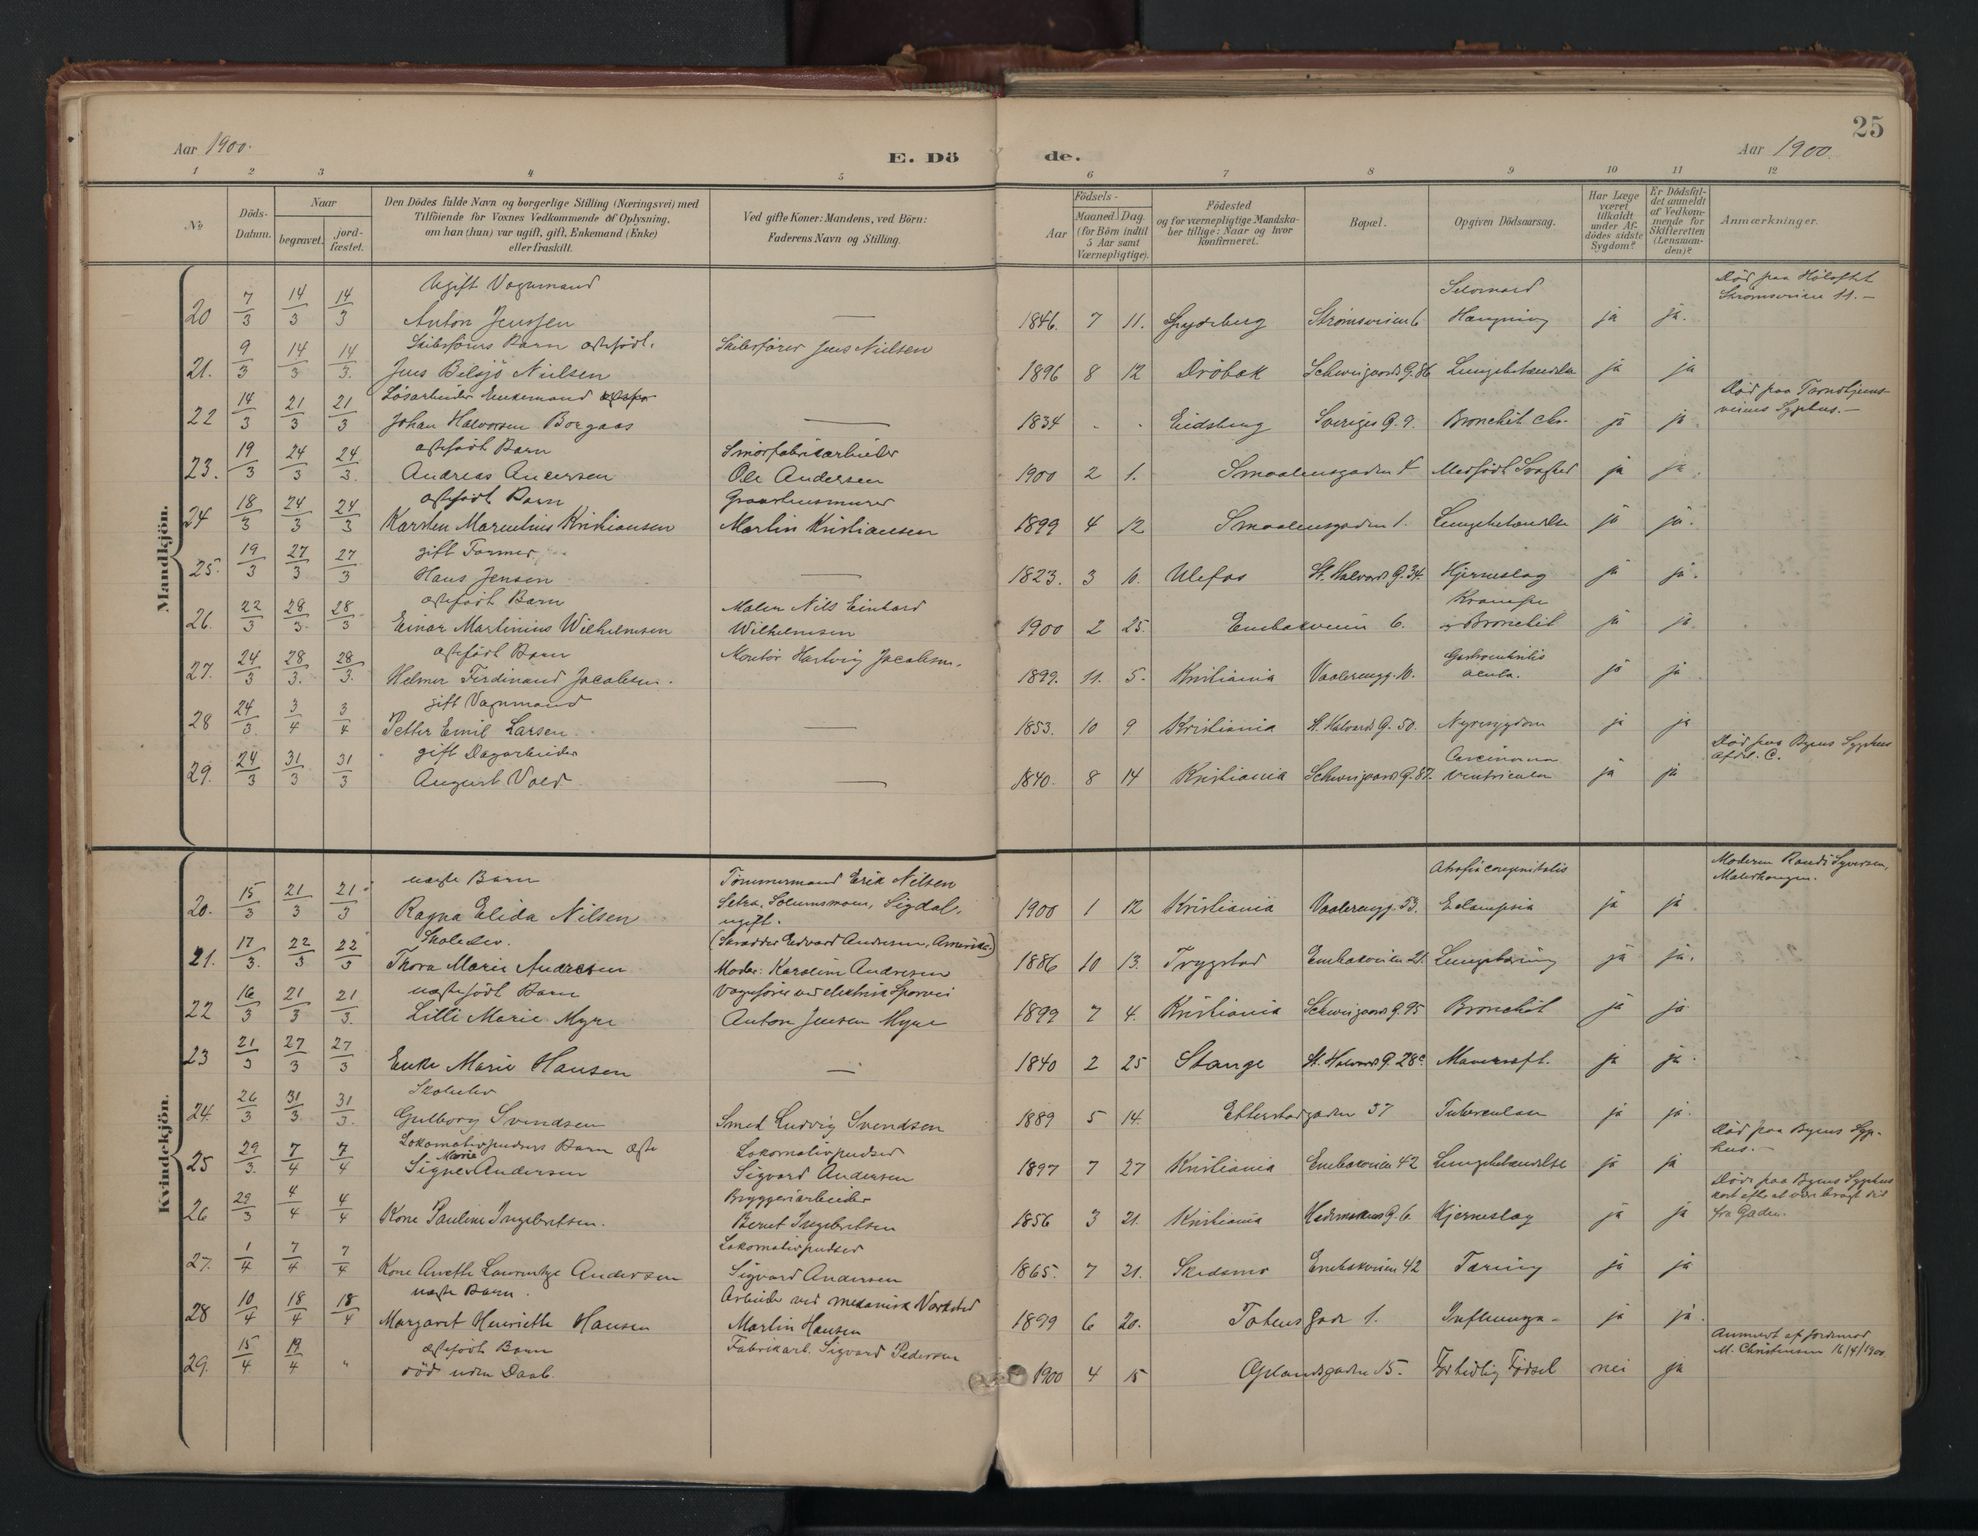 25
Aar 1900.
E. Dö
de.
Aar 1900.
1 2 3 4 5 6 7 8 9 10 11 12
No.
Döds-Datum.
Naar
begravet.
jordfæstet.
Den Dödes fulde Navn og borgerlige Stilling (Næringsvei) med
Tilföiende for Voxnes Vedkommende af Oplysning,
om han (hun) var ugift, gift, Enkemand (Enke)
eller fraskilt.
Ved gifte Koner: Mandens, ved Börn:
Faderens Navn og Stilling.
Födsels-
Aar
Maaned. Dag.
(for Börn indtil
5 Aar samt
Værnepligtige).
Födested
og for værnepligtige Mandska-
ber tillige: Naar og hvor
konfirmeret.
Bopæl.
Opgiven Dödsaarsag.
Har Læge
været
tilkaldt
under Af-
dödes sidste
Sygdom?
Er Dödsfal-
det anmeldt
af Vedkom-
mende for
Skifteretten
(Lensman-
den)?
Anmærkninger.
Mandkjön.
Ugift Vognmand
20 7/3 14/3 14/3 Anton Jenssen — 1846. 7 11. Spydeberg Strømsveien 6 Selvmord Hængning ja ja. Død paa Høloftet Strømsveien 11.—
Skibsførers Barn ægtefødt.
21. 9/3 14/3 14/3. Jens Bilsjø Nielsen Skibsfører Jens Nielsen 1896 8 12 Drøbak Schweigaards G. 86 Lungebetændelse ja ja
Løsarbeider Enkemand
22 14/3 21/3 21/3 Johan Halvorsen Borgaas — 1834 - - Eidsberg Sveriges G. 9. Bronchit chr. ja ja Død paa Trondhjems- veiens Sygehus.—
ægtefødt Barn
23. 19/3 24/3 24/3. Andreas Andersen Smørfabrikarbeider Ole Andersen 1900 2 1. Smaalensgaden Medfødt Svaghed ja ja.
ægtefødt Barn
24 18/3 24/3 24/3 Karsten Marentius Kristiansen Graastensmurer Martin Kristiansen 1899 4 12 Smaalensgaden 1. Lungebetændelse ja ja.
gift Former
25. 19/3 27/3 27/3 Hans Jensen — 1823. 3 10. Ulefos St. Halvards G. 34. Hjerneslag ja ja.
ægtefødt Barn
26. 22/3 28/3. 28/3 Einar Martinius Wilhelmsen Maler Nils Einhard Wilhelmsen 1900 2 25. Enebakveien 6. Krampe og Bronchit ja ja
ægtefødt Barn
27. 24/3 28/3. 28/3. Helmer Ferdinand Jacobsen. Montør Hartvig Jacobsen. 1899. 11. 5. Kristiania Vaalerengg. 10. Gastroenteritis acuta. ja ja
gift Vognmand
28 24/3. 3/4 3/4 Petter Emil Larsen — 1853. 10 9 Kristiania St. Halvards G. 50. Nyresygdom ja ja
gift Dagarbeider
29. 24/3 31/3 31/3 August Vold — 1840. 8 14 Kristiania Schweigaards G. 87. Carcinoma Ventriculi ja ja Død paa Byens Sygehus Afdl. C.
Kvindekjön.
uægte Barn
20. 15/3 21/3 21/3 Ragna Elida Nilsen Tømmermand Erik Nilsen Setra, Solumsmoen, Sigdal, ugift. 1900 1 12 Kristiania Vaalerengg. 53. Atrofia congenitalis Eclampsia ja ja Moderen Randi Syversen, Malerhaugen.
Skoleelev.
21. 17/3. 22/3 22/3 Thora Marie Andresen (Skrædder Edvard Andresen, Amerika.) Moder: Karoline Andresen 1886 10 13. Trygstad Enebakveien 21. Lungetæring ja ja.
uægtefødt Barn
22 16/3 21/3 21/3. Lilli Marie Myre Vognfører ved elektrisk Sporvei Anton Jensen Myre 1899 7 4. Kristiania Schweigaards G. 95 Bronchit ja ja
23 21/3 27/3 27/3 Enke Marie Hansen — 1840 2 25 Stange St. Halvards G. 28c Mavekræft. ja ja.
Skoleelev
24. 26/3 31/3. 31/3. Gulborg Svendsen Smed Ludvig Svendsen 1889 5 14. Etterstadgaden 37 Tuberculose ja ja.
Lokomotivpudsers Barn ægte
25 29/3. 7/4 7/4 Signe Marie Andersen Lokomotivpudser Sigvard Andersen 1897 7 27 Kristiania Enebakveien 42 Lungebetændelse ja ja Død paa Byens Syge- hus.—
26 29/3 4/4 4/4 Kone Pauline Ingebretsen. Bryggeriarbeider Bernt Ingebretsen 1856 3 21. Kristiania Hedemarkens G. 6. Hjerneslag ja ja Døde paa Byens Sygehus kort efter at være bragt did fra Gaden.
27. 1/4 7/4 7/4 Kone Anette Lawrentze Andersen Lokomotivpudser Sigvard Andersen 1865. 7 21. Skedsmo Enebakveien 42 Tæring ja ja
uægte Barn.
28 10/4 18/4 18/4 Margaret Henriette Hansen Arbeider ved mekanisk Værksted Martin Hansen 1899 6 20. Totensgade 1. Influenza ja ja.
ægtefødt Barn
29. 15/4 19/4 " død uden Daab. Fabrikarb. Sigvard Pedersen 1900 4 15 Oplandsgaden 15. Fortidlig Fødsel nei ja Anmeldt af Jordemod. M. Christensen 16/4/1900